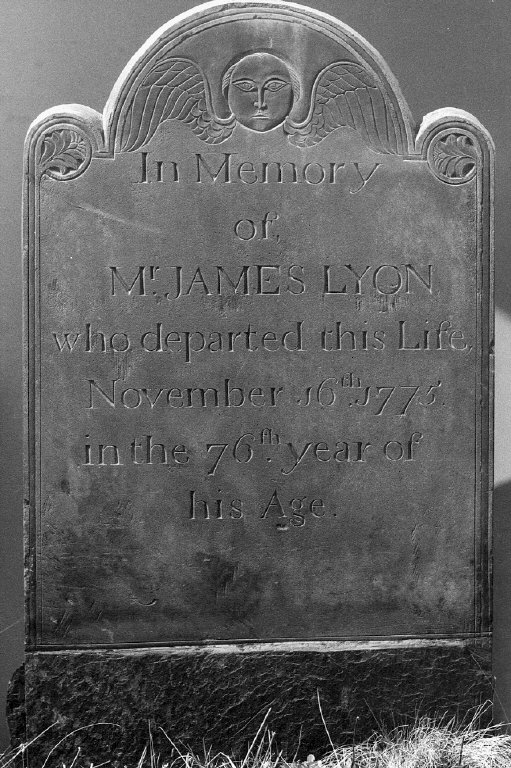 In Memory
of,
Mr. JAMES LYON
who departed this Life
November 16th. 1775.
in the 76th. year of
his Age.